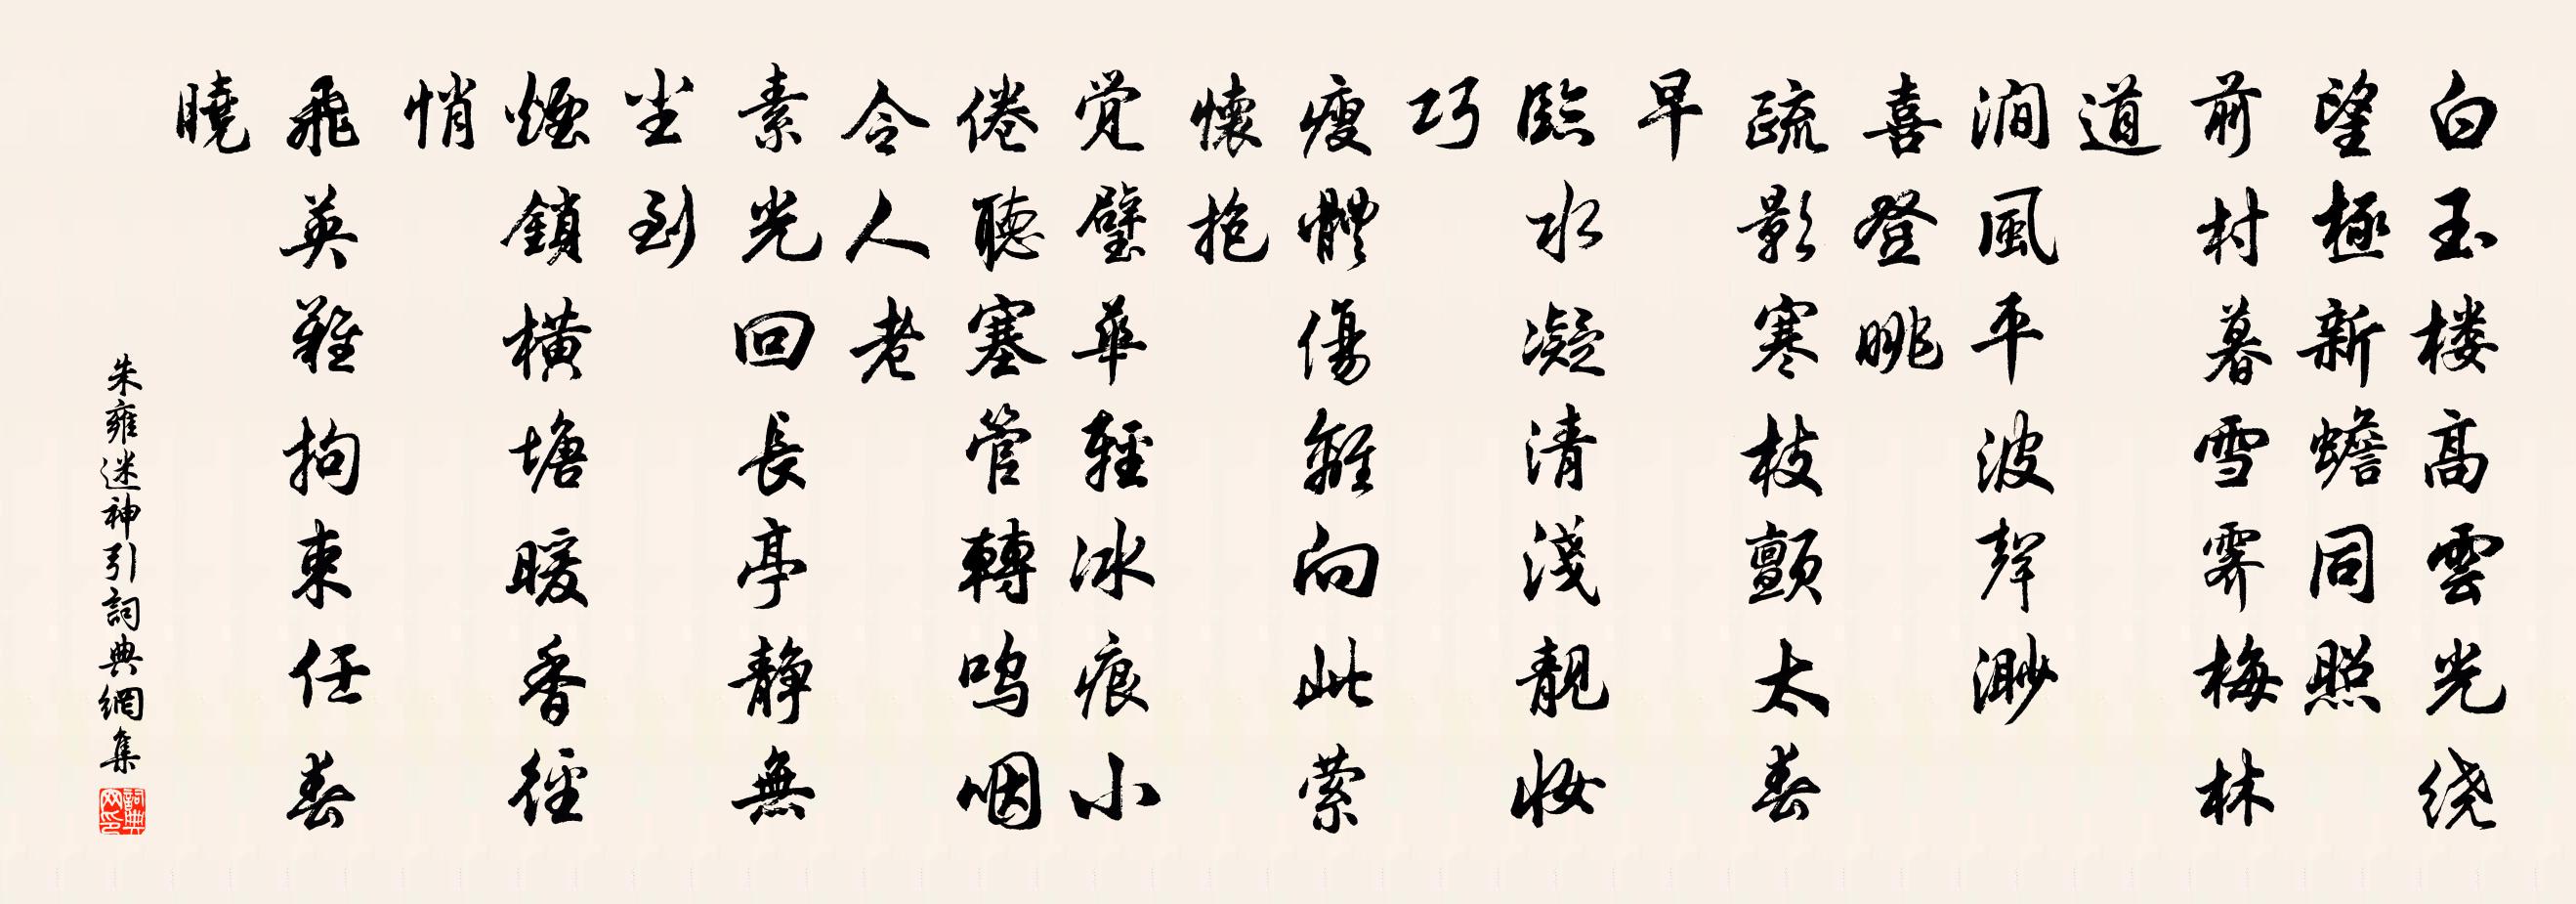 白玉楼高雲光绕
望極新蟾同照
前村暮雪霽梅林
道
澗風平波聲渺
喜登眺
疏影寒枝顫太春
早
臨水凝清淺靚妝
巧
瘦體傷離向此萦
懷抱
觉璧華輕冰痕小
倦聽塞管轉鸣咽
令人老
素光回長亭静無
尘到
煙鎖橫塘暖香徑
悄
飛英難拘束任春
曉
朱雍迷神引詞典網集
詞典网印